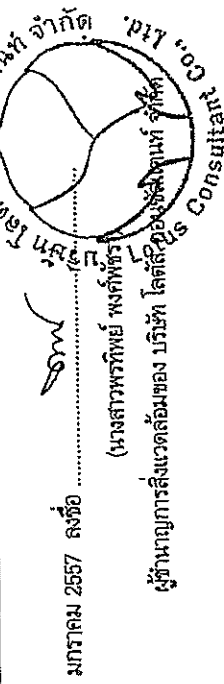 มกราคม 2557 ลงชื่อ
(นางสาวพรทิพย์ พงศ์พัชร
ผู้ชำนาญการสิ่งแวดล้อมของ บริษัท โลตัส คอนซัลแทนท์ จำกัด
นท์ จำกัด
Co., Ltd.
Consultant
บริษัท โลตั